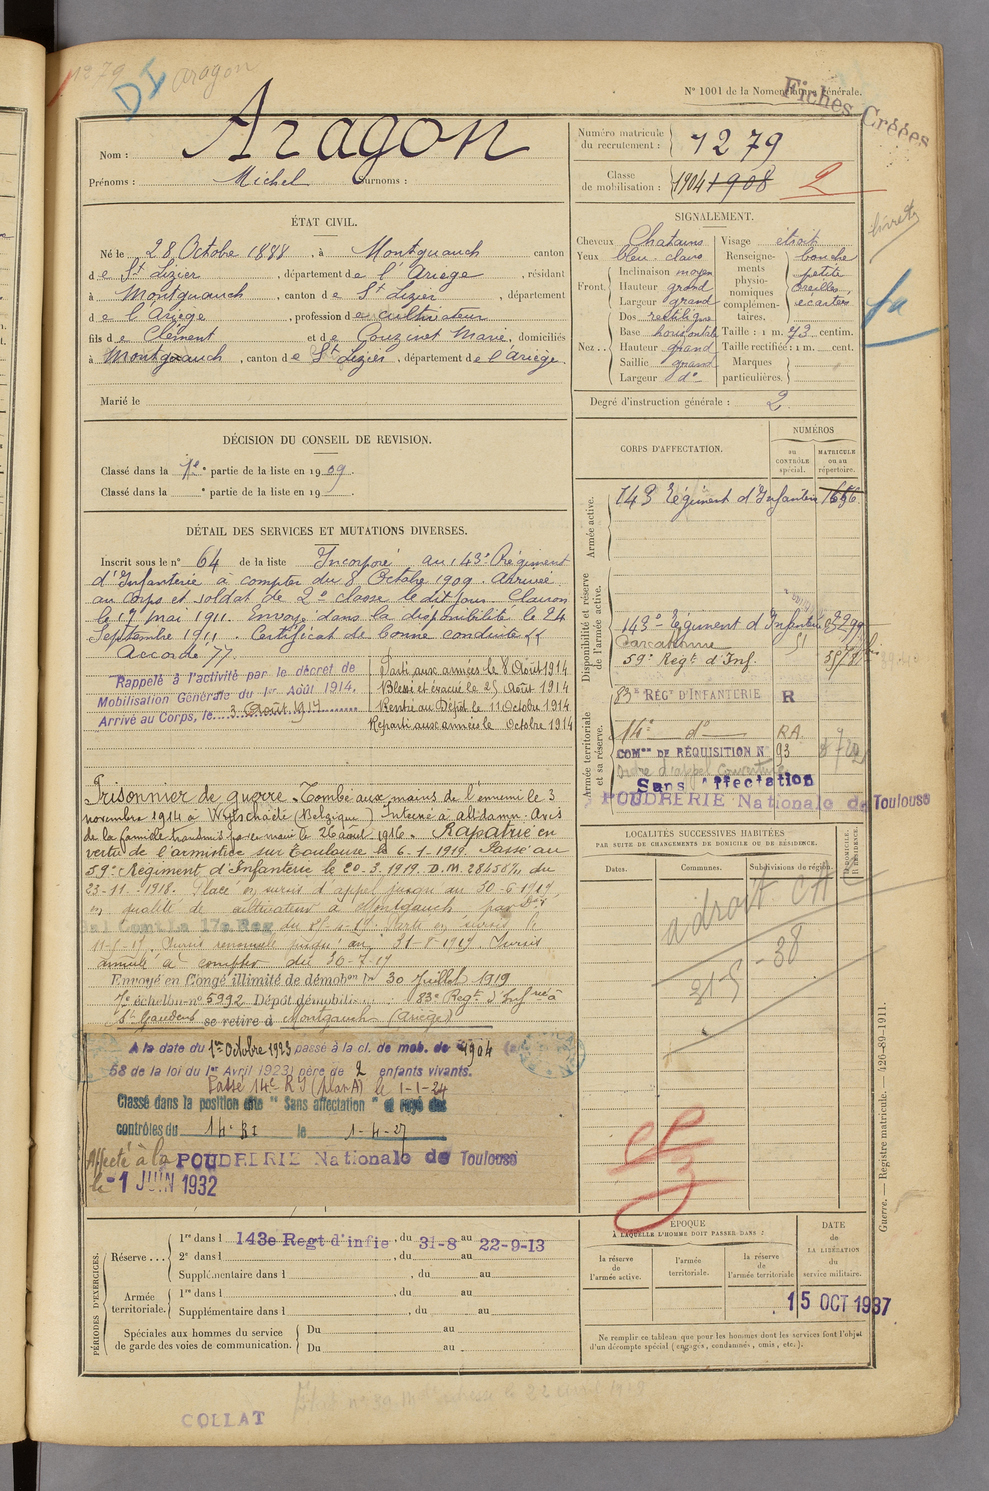 1279
DI
Aragon
Nº 1001 de la Nomenclature générale.
Fiches Créées
Nom : Aragon
Prénoms : Michel Surnoms :
Numéro matricule du recrutement : 1279
Classe de mobilisation : 1904 1908 2
ÉTAT CIVIL.
Né le 28 Octobre 1888, à Montgauch canton
de St Lizier, département de l'Ariège, résidant
à Montgauch, canton de St Lizier, département
de l'Ariège, profession de cultivateur
fils de Clément et de Gouzinet Marie, domiciliés
à Montgauch, canton de St Lizier, département de l'Ariège.
Marié le
SIGNALEMENT.
Cheveux Chatains
Yeux bleu clairs
Front. Inclinaison moyen
Hauteur grand
Largeur grand
Nez... Dos rectiligne
Base horizontale
Hauteur grand
Saillie grand
Largeur do
Visage étroit
Renseignements physionomiques complémentaires. bouche petite oreilles écartées
Taille : 1 m. 73 centim.
Taille rectifiée : 1 m. cent.
Marques particulières.
Degré d'instruction générale : 2
livret
DÉCISION DU CONSEIL DE REVISION.
Classé dans la 1re partie de la liste en 1909.
Classé dans la e partie de la liste en 19 .
DÉTAIL DES SERVICES ET MUTATIONS DIVERSES.
Inscrit sous le nº 64 de la liste Incorporé au 143e Régiment
d'Infanterie à compter du 8 Octobre 1909. Arrivé
au corps et soldat de 2e classe le dit jour. Clairon
le 17 mai 1911. Envoyé dans la disponibilité le 24
Septembre 1911. Certificat de bonne conduite
Accordé
Rappelé à l'activité par le décret de
Mobilisation Générale du 1er Août 1914.
Arrivé au Corps, le 3 Août 1914
Parti aux armées le 8 Août 1914
Blessé et évacué le 25 Août 1914
Rentré au Dépôt le 11 Octobre 1914
Reparti aux armées le Octobre 1914
Prisonnier de guerre. Tombé aux mains de l'ennemi le 3
novembre 1914 à Wytschaete (Belgique) Interné à alidamn. Avis
de la famille transmis par le maire le 26 août 1916. Rapatrié en
vertu de l'armistice sur Toulouse le 6-1-1919. Passé au
59e Régiment d'Infanterie le 20-3-1919. D.M. du
23-11-1918. Placé en sursis d'appel jusqu'au 30-6-1919
en qualité de cultivateur à Montgauch par Don
Gal Comt La 17e Reg du
Sursis renouvelé jusqu'au 31-8-1919. Sursis
annulé à compter du 30-7-19
Envoyé en Congé illimité de démobon le 30 Juillet 1919
7e échelon nº 5992 Dépôt démobili 83e Regt d'Inf
St Gaudens se retire à Montgauch (Ariège)
A la date du 1er Octobre 1923 passé à la cl. de mob. de 1904
58 de la loi du 1er Avril 1923) père de 2 enfants vivants.
Passé 14e RI (plan A) le 1-1-24
Classé dans la position dite "Sans affectation" et rayé des
contrôles du 14e RI le 1-4-27
Affecté à la POUDRERIE Nationale de Toulouse
le -1 JUIN 1932
CORPS D'AFFECTATION.
NUMÉROS
au CONTRÔLE spécial.
MATRICULE ou au répertoire.
Armée active.
143 Régiment d'Infanterie 1656
Disponibilité et réserve de l'armée active.
143e Régiment d'Infanterie
Carcassonne
59e Regt d'Inf.
83e RÉGt D'INFANTERIE R
Armée territoriale et sa réserve.
14e do RA
COMon DE RÉQUISITION N 93
Ordre d'appel Couverture
Sans Affectation
POUDRERIE Nationale de Toulouse
LOCALITÉS SUCCESSIVES HABITÉES
PAR SUITE DE CHANGEMENTS DE DOMICILE OU DE RÉSIDENCE.
Dates. Communes. Subdivisions de région. D. DOMICILE. R. RÉSIDENCE.
a droit CA
21-5-38
PÉRIODES D'EXERCICES.
Réserve... 1re dans l 143e Regt d'infie, du 31-8 au 22-9-13
2e dans l , du au
Supplémentaire dans l , du au
Armée territoriale. 1re dans l , du au
Supplémentaire dans l , du au
Spéciales aux hommes du service de garde des voies de communication. Du au
Du au
ÉPOQUE
À LAQUELLE L'HOMME DOIT PASSER DANS :
la réserve de l'armée active. l'armée territoriale. la réserve de l'armée territoriale
DATE de LA LIBÉRATION du service militaire.
15 OCT 1937
Ne remplir ce tableau que pour les hommes dont les services font l'objet
d'un décompte spécial (engagés, condamnés, omis, etc.).
Guerre. — Registre matricule. — 426-89-1911.
COLLAT